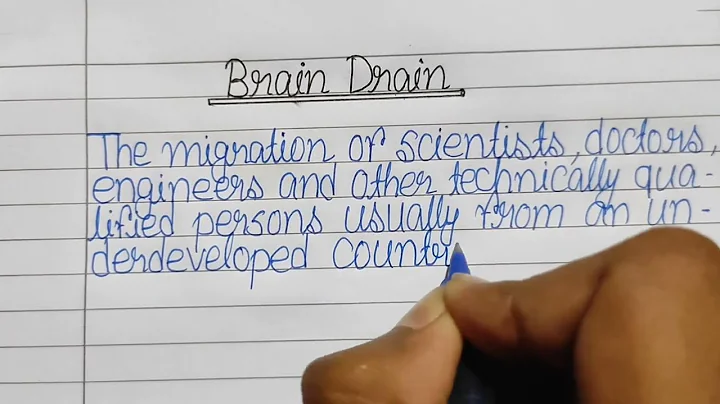 Brain Drain
The migration of scientists, doctors,
engineers and other technically qua-
lified persons usually from an un-
derdeveloped countr